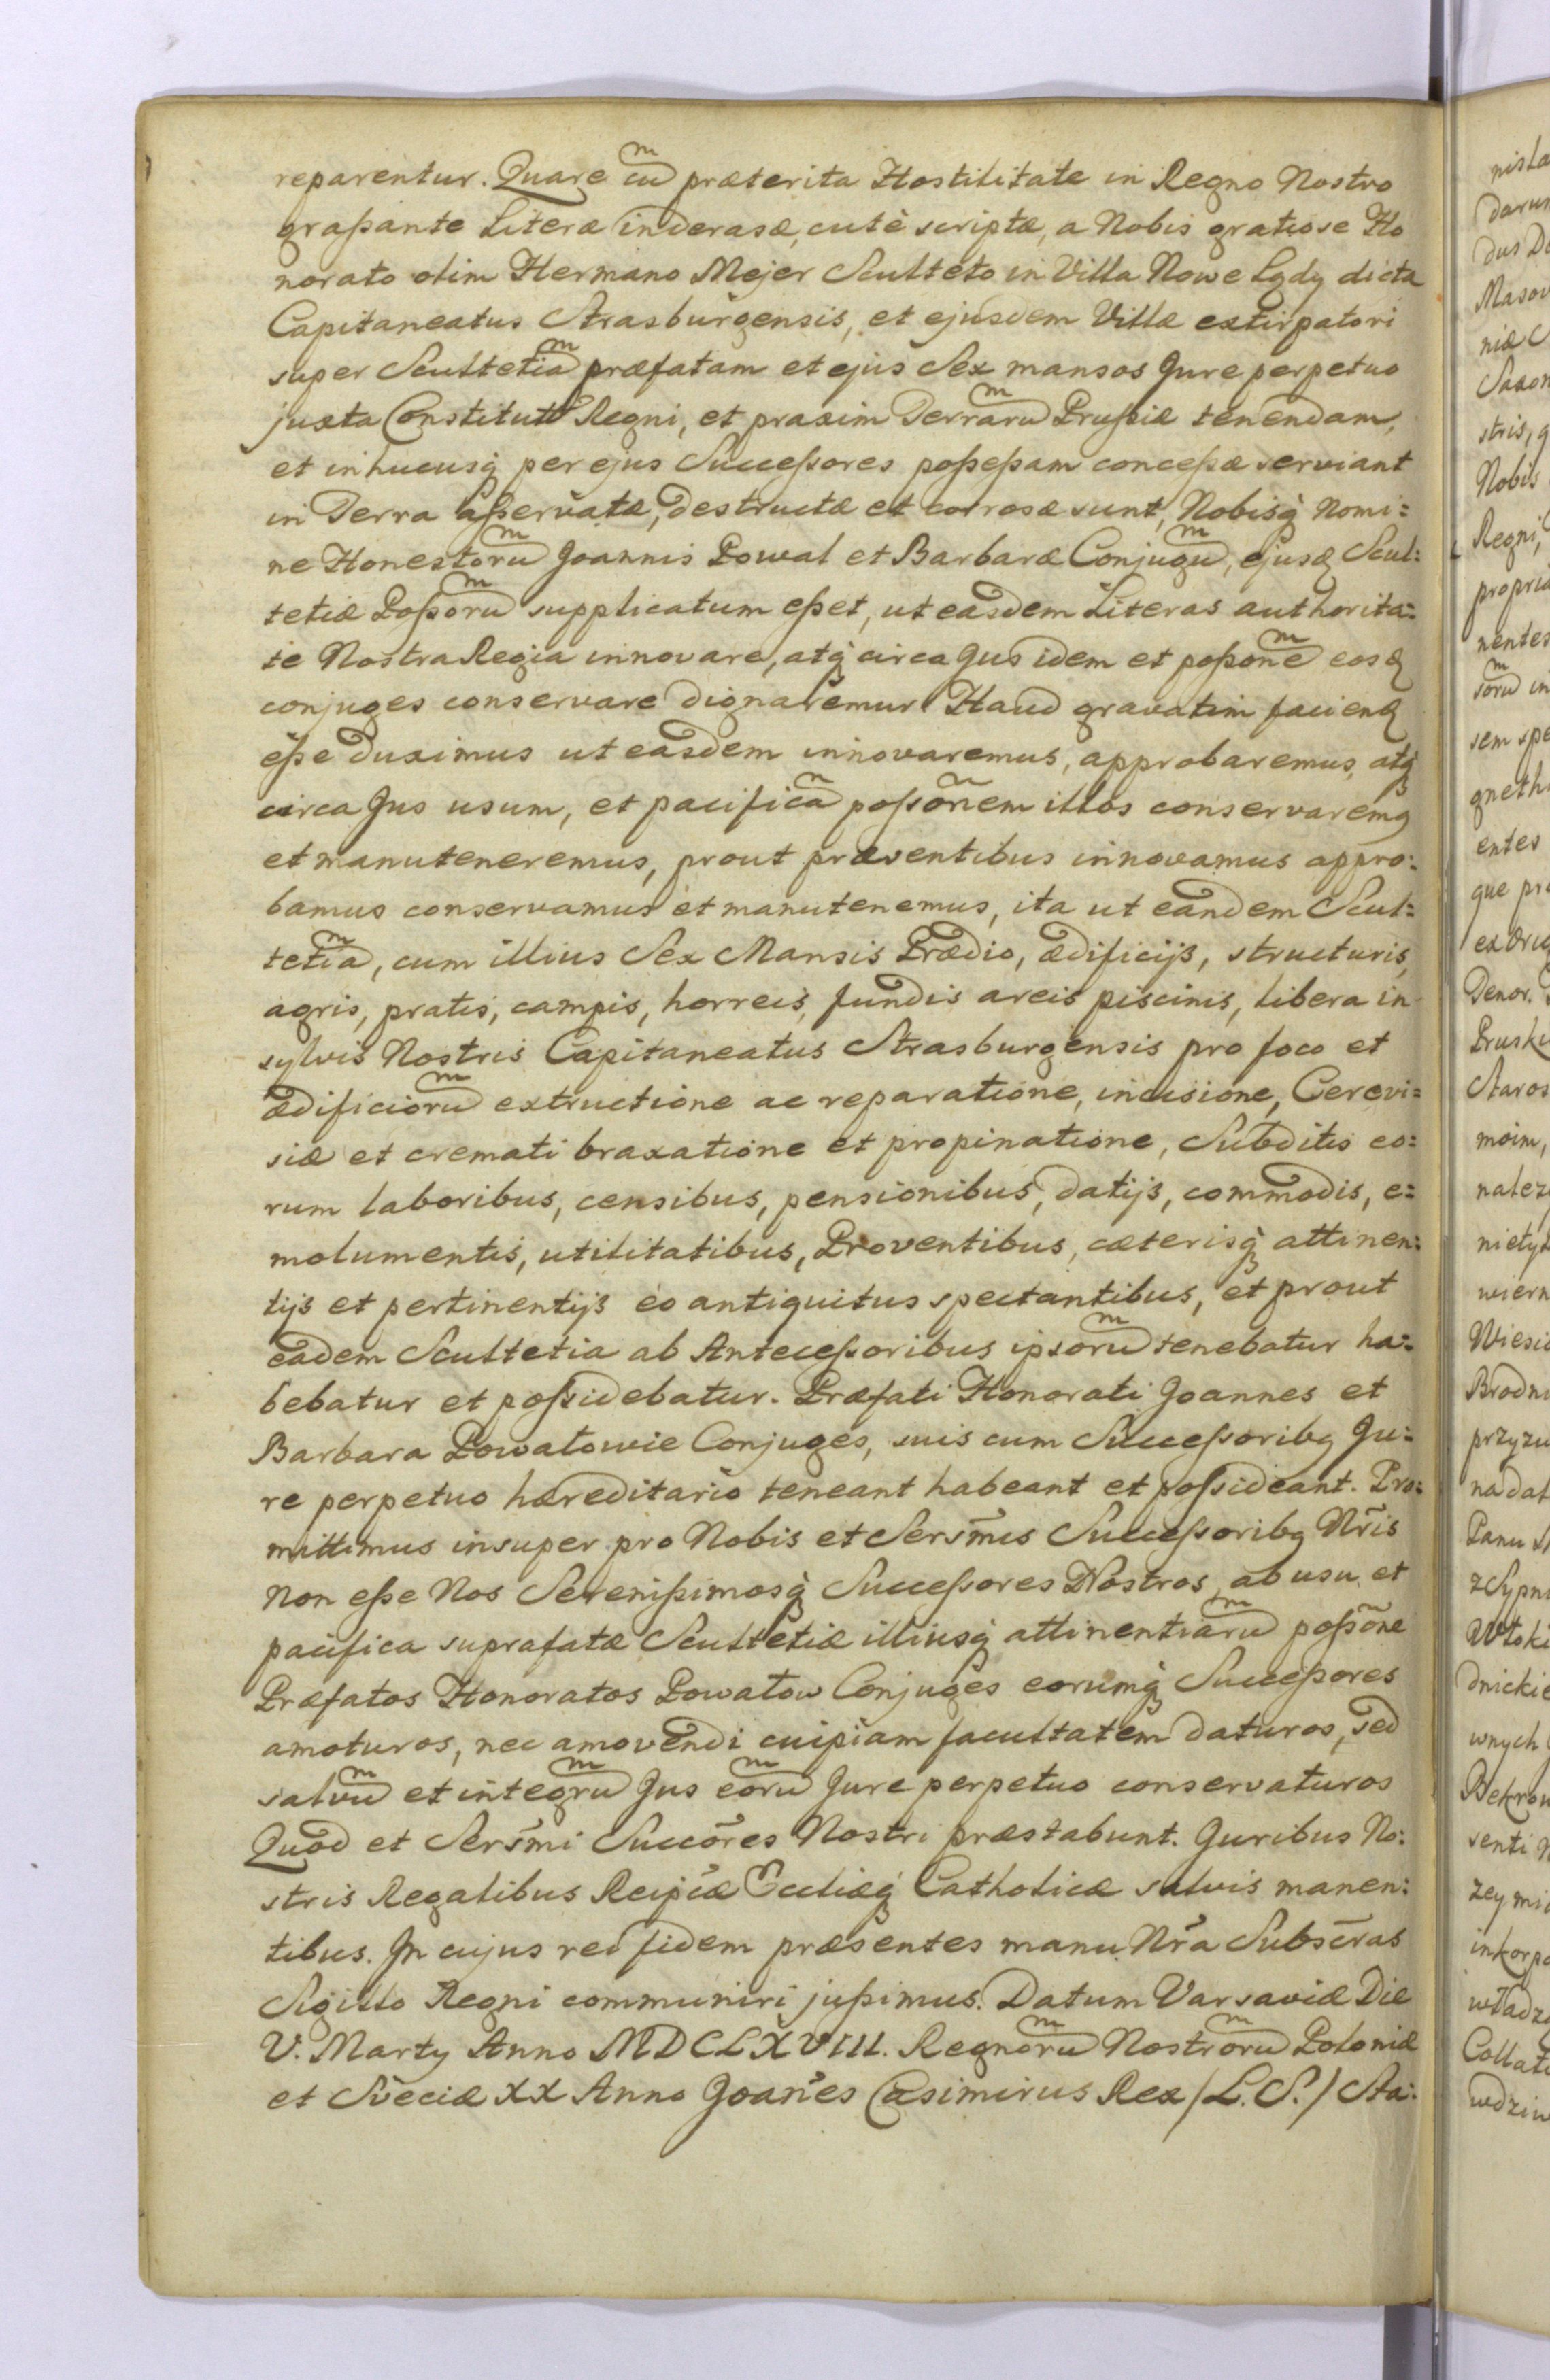 reparentur. Quare cum præterita Hostilitate in Regno Nostro
graßante Literæ in derasæ, cutè scriptæ, a Nobis gratiose Ho
norato olim Hermano Mejer Sculteto in Villa Nowe Lgdy dicta
Capitaneatus Strasburgensis, et ejusdem Villæ extirpatori
super Scultetiam præfatam et ejus Sex mansos Jure perpetuo
juxta Constitut Regni, et praxim Terrarum Prußiæ tenendam,
et inhucusq per ejus Succeßores poßeßam conceßæ serviant
in Terra aßervatæ, destructæ et corrosæ sunt, Nobisq Nomi:
ne Honestorum Joannis Powal et Barbaræ Conjugum, ejusq Scul:
tetiæ Poßorum supplicatum eßet, ut easdem Literas authorita:
te Nostra Regia innovare, atq circa Jus idem et poßonem eosq
conjuges conservare dignaremur Haud gravatim faciend
eße duximus ut easdem innovaremus, approbaremus, atq
circa Jus usum, et pacificã poßõnem illos conservaremq
et manuteneremus, prout præsentibus innovamus appro:
bamus conservamus et manutenemus, ita ut eandem Scul:
tetiam, cum illius Sex Mansis Prædio, ædificijs, structuris,
agris, pratis, campis, horreis, fundis areis piscinis, libera in
sylvis Nostris Capitaneatus Strasburgensis pro foco et
ædificiorum extructione ac reparatione, incisione, Cerevi:
siæ et cremati braxatione et propinatione, Subditis eo:
rum laboribus, censibus, pensionibus, datijs, commodis, e:
molumentis, utilitatibus, Proventibus, cæterisq attinen:
tijs et pertinentijs eo antiquitus spectantibus, et prout
eadem Scultetia ab Anteceßoribus ipsorum tenebatur ha:
bebatur et poßidebatur. Præfati Honorati Joannes et
Barbara Powałowie Conjuges, suis cum Succeßoribq Ju:
re perpetuo hæreditario teneant habeant et poßideant. Pro:
mittimus insuper pro Nobis et Sersm̃is Succeßoribq Nr̃is
non eße Nos Serenißimosq Succeßores Nostros, ab usu et
pacifica suprafatæ Scultetiæ illiusq attinentiarum poßõne
Præfatos Honoratos Powałow Conjuges eorumq Succeßores
amoturos, nec amovendi cuipiam facultatem daturos, sed
salvum et integrum Jus eorum Jure perpetuo conservaturos
Quod et Sersm̃i Succõres Nostri præstabunt. Juribus No:
stris Regalibus Reipcæ Ecclæq Catholicæ salvis manen:
tibus. In cujus rei fidem præsentes manu Nr̃a Subscr̃as
Sigillo Regni communiri jußimus. Datum Varsaviæ Die
V. Marty Anno MDCLXVIII. Regnorum Nostrorum Poloniæ
et Sveciæ XX Anno Joañes Casimirus Rex /L.S./ Sta: